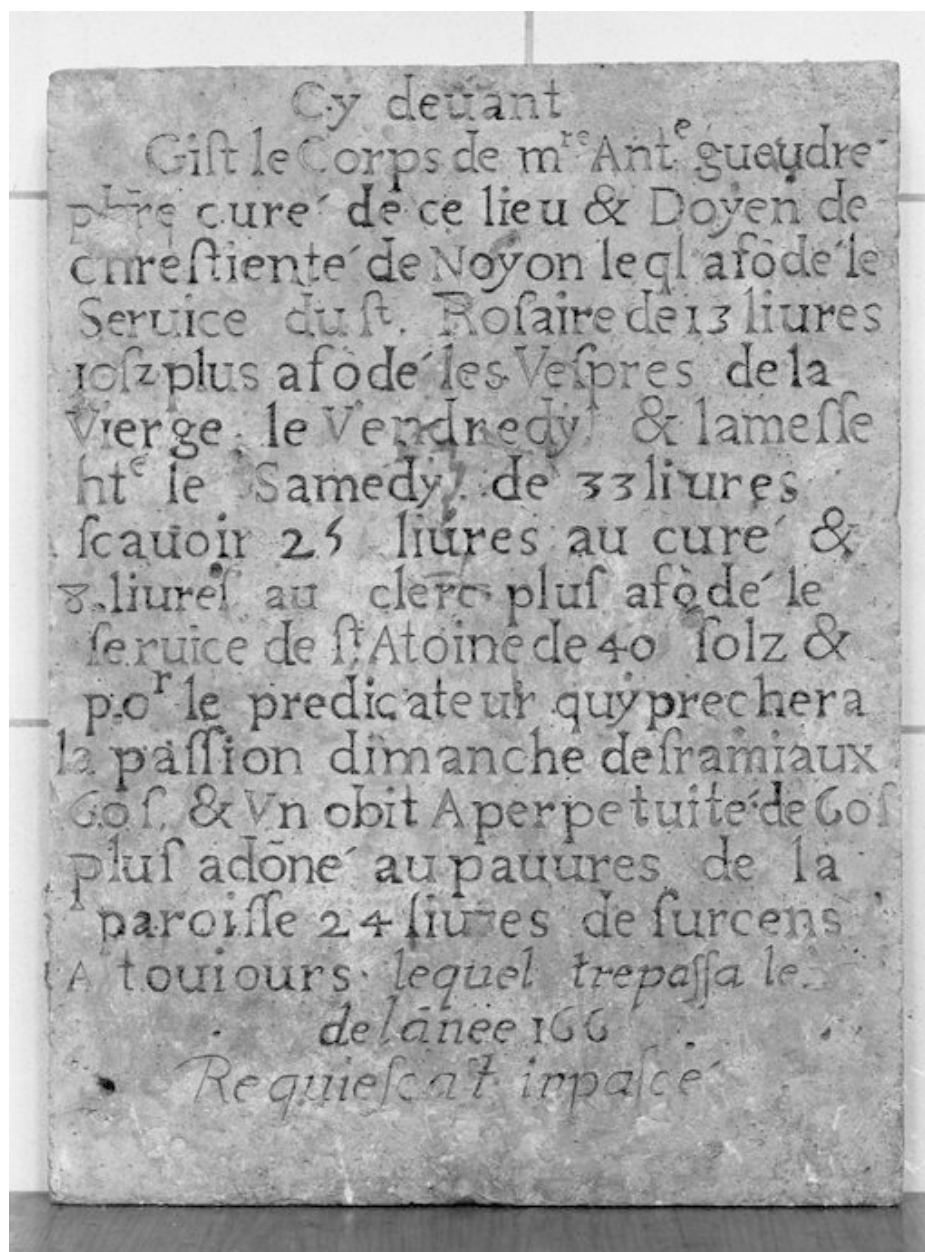 Cy deuant
Giſt le Corps de mʳᵉ Antᵉ gueudre
pbr̃e curé de ce lieu & Doyen de
chreſtienté de Noyon leql afõdé le
Seruice du ſt. Roſaire de 13 liures
10ſz plus afõdé les Veſpres de la
Vierge le Vendredy & lameſſe
htᵉ le Samedy de 33 liures
ſcauoir 25 liures au curé &
8 liureſ au clerc pluſ afõdé le
ſeruice de ſt Atoine de 40 ſolz &
poʳ le predicateur quy prechera
la paſſion dimanche deſramiaux
60ſ & Vn obit A perpetuité de 60ſ
pluſ adõné au pauures de la
paroiſſe 24 liures de ſurcens
A touiours lequel trepaſſa le
de lãnee 166
Requieſcat inpaſcé